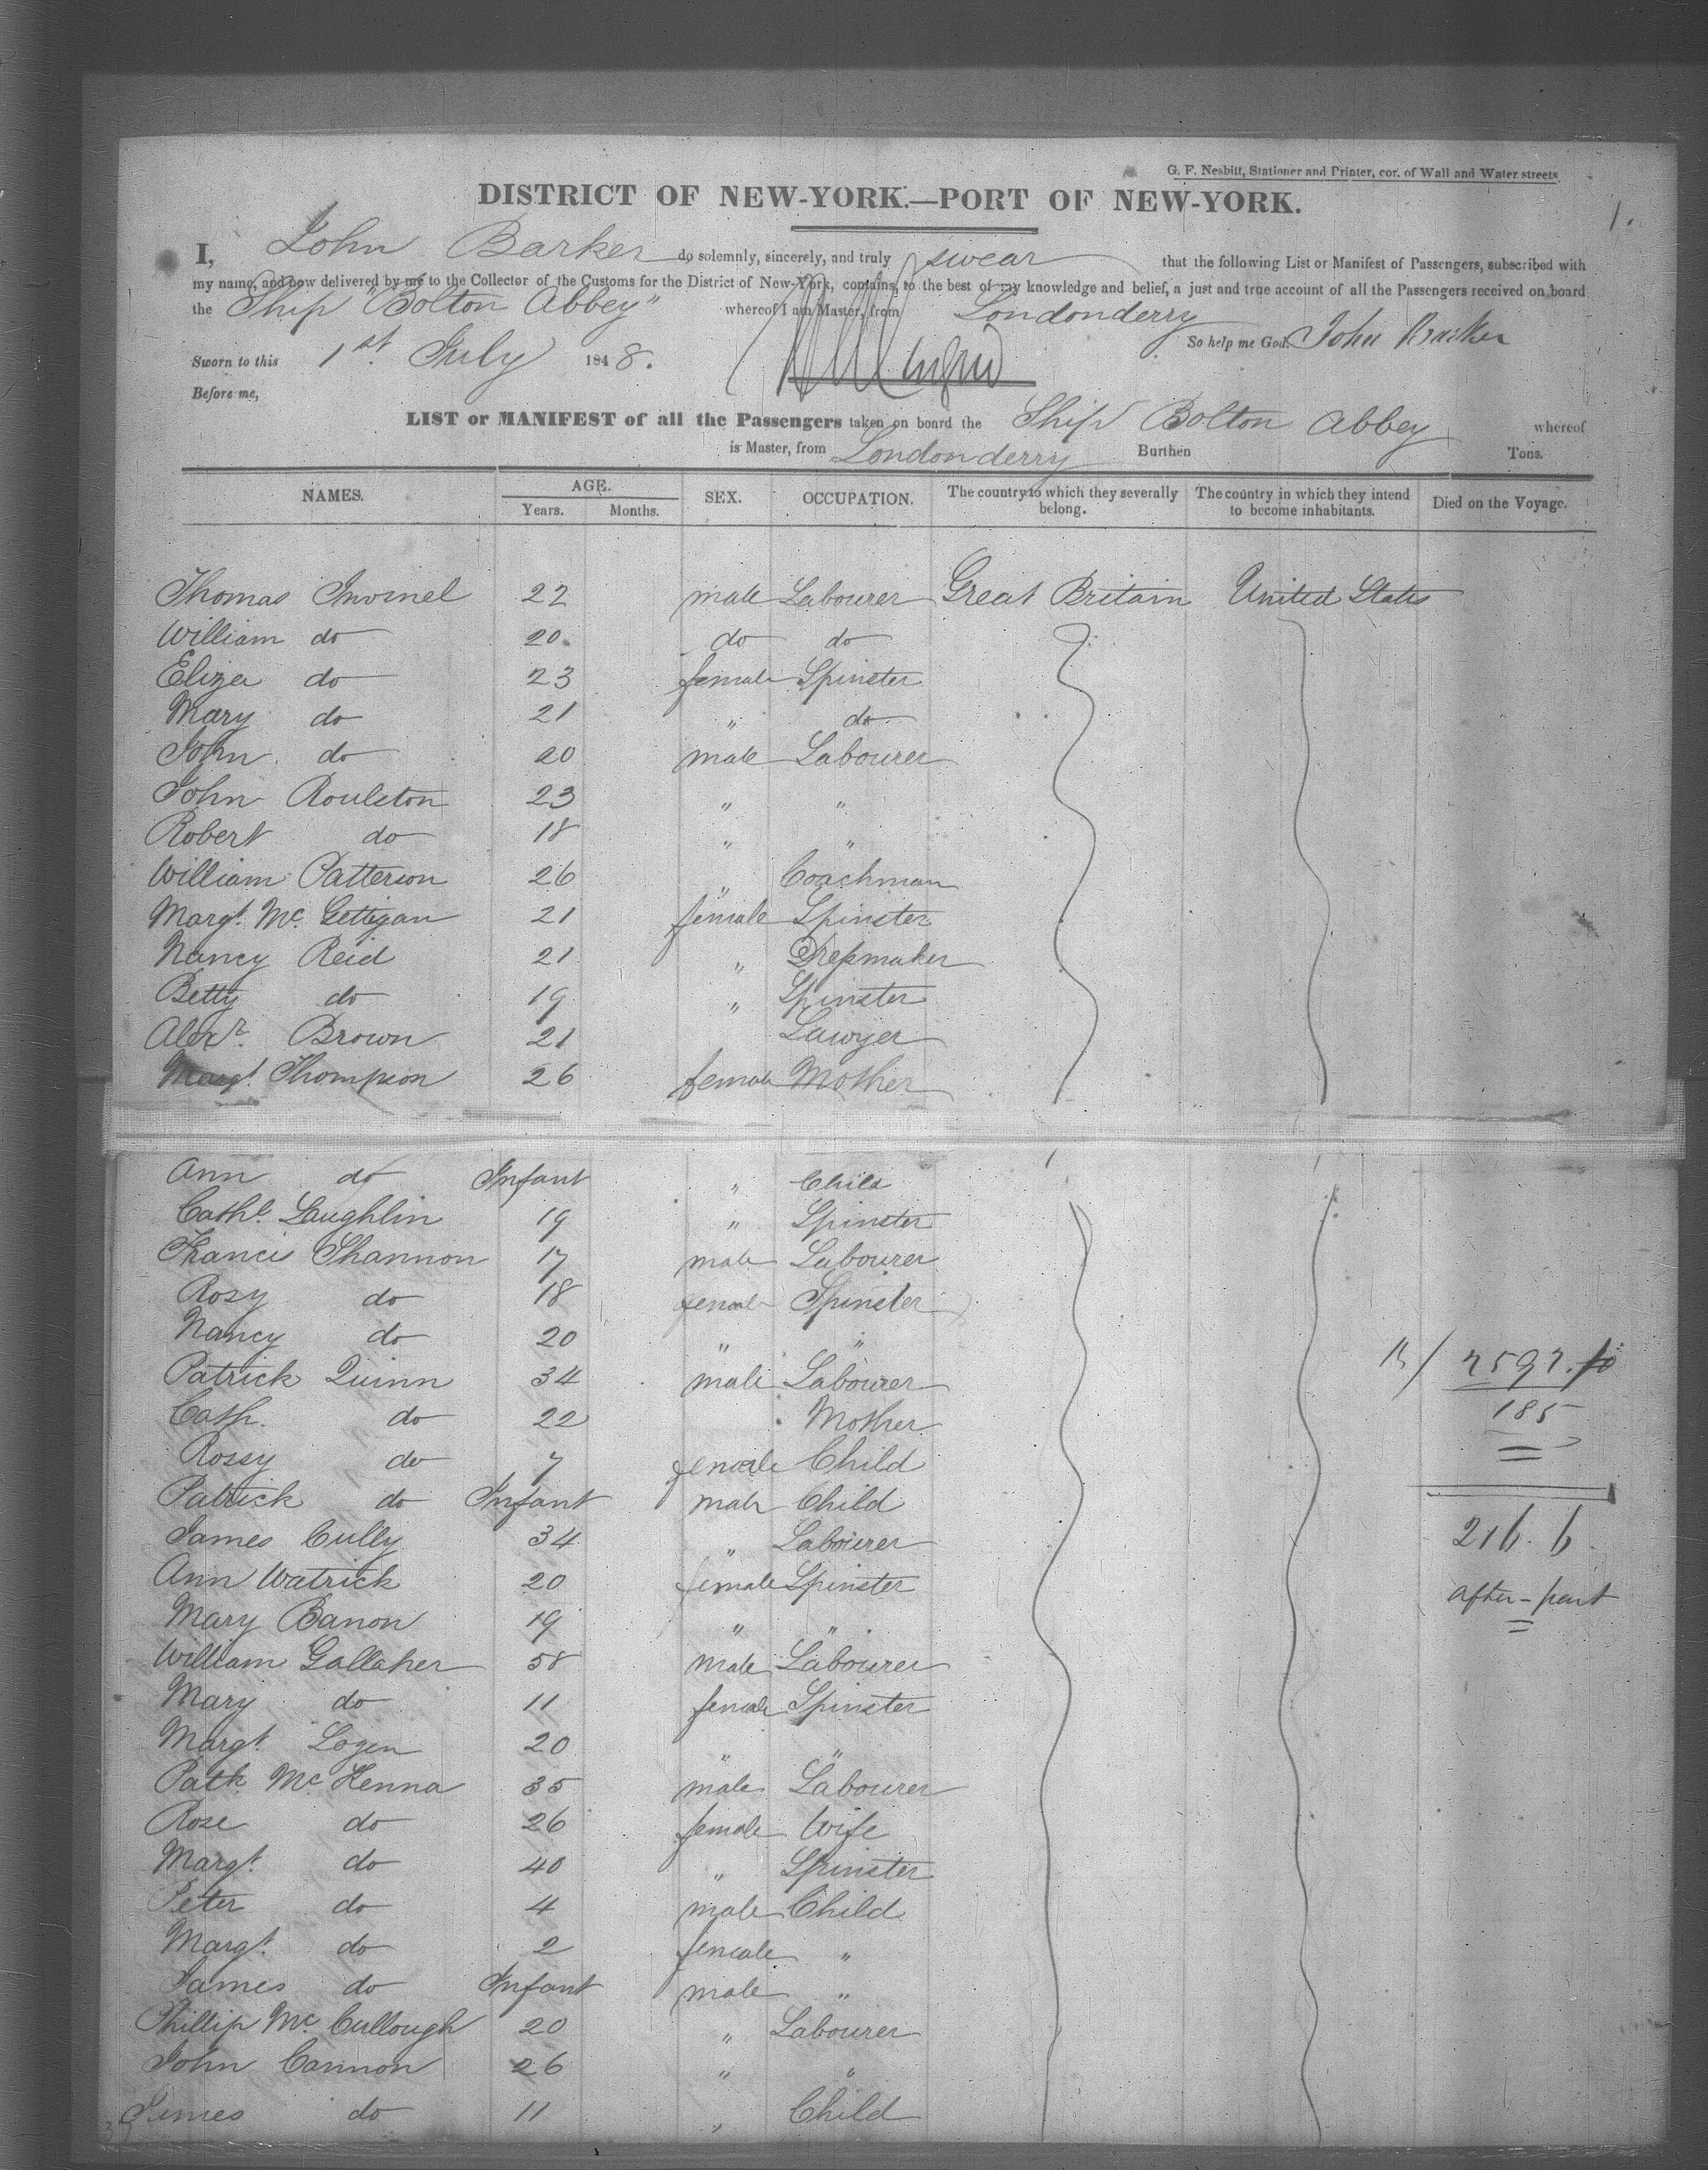 G. F. Nesbitt, Stationer and Printer, cor. of Wall and Water streets
DISTRICT OF NEW-YORK.—PORT OF NEW-YORK.
1.
I, John Barker do solemnly, sincerely, and truly swear that the following List or Manifest of Passengers, subscribed with
my name, and now delivered by me to the Collector of the Customs for the District of New-York, contains, to the best of my knowledge and belief, a just and true account of all the Passengers received on board
the Ship "Bolton Abbey" whereof I am Master, from Londonderry
So help me God. John Barker
Sworn to this 1st July 1848.
Before me,
LIST or MANIFEST of all the Passengers taken on board the Ship Bolton Abbey whereof
is Master, from Londonderry Burthen Tons.
NAMES. AGE. Years. Months. SEX. OCCUPATION. The country to which they severally belong. The country in which they intend to become inhabitants. Died on the Voyage.
Thomas 22 male Labourer Great Britain United States
William do 20 do do
Eliza do 23 female Spinster
Mary do 21 " do
John do 20 male Labourer
John Rouleton 23 " "
Robert do 18 " "
William Patterson 26 " Coachman
Margt. Mc. Gettigan 21 female Spinster
Nancy Reid 21 " Dressmaker
Betty do 19 " Spinster
Alexr. Brown 21 Lawyer
Margt. Thompson 26 female Mother
Ann do Infant " Child
Cathe. Laughlin 19 " Spinster
Francis Shannon 17 male Labourer
Rosy do 18 female Spinster
Nancy do 20 " "
Patrick Quinn 34 male Labourer
Cath. do 22 Mother
Rosey do 7 female Child
Patrick do Infant male Child
James Cully 34 " Labourer
Ann Watrick 20 female Spinster
Mary Banon 19 " "
William Gallaher 58 male Labourer
Mary do 11 female Spinster
Margt. Logen 20 " "
Patk. Mc. Kenna 35 male Labourer
Rose do 26 female Wife
Margt. do 40 " Spinster
Peter do 4 male Child
Margt. do 2 female "
James do Infant male "
Phillip Mc. Cullough 20 " Labourer
John Cannon 26 " "
James do 11 " Child
185
216. 6
after-part